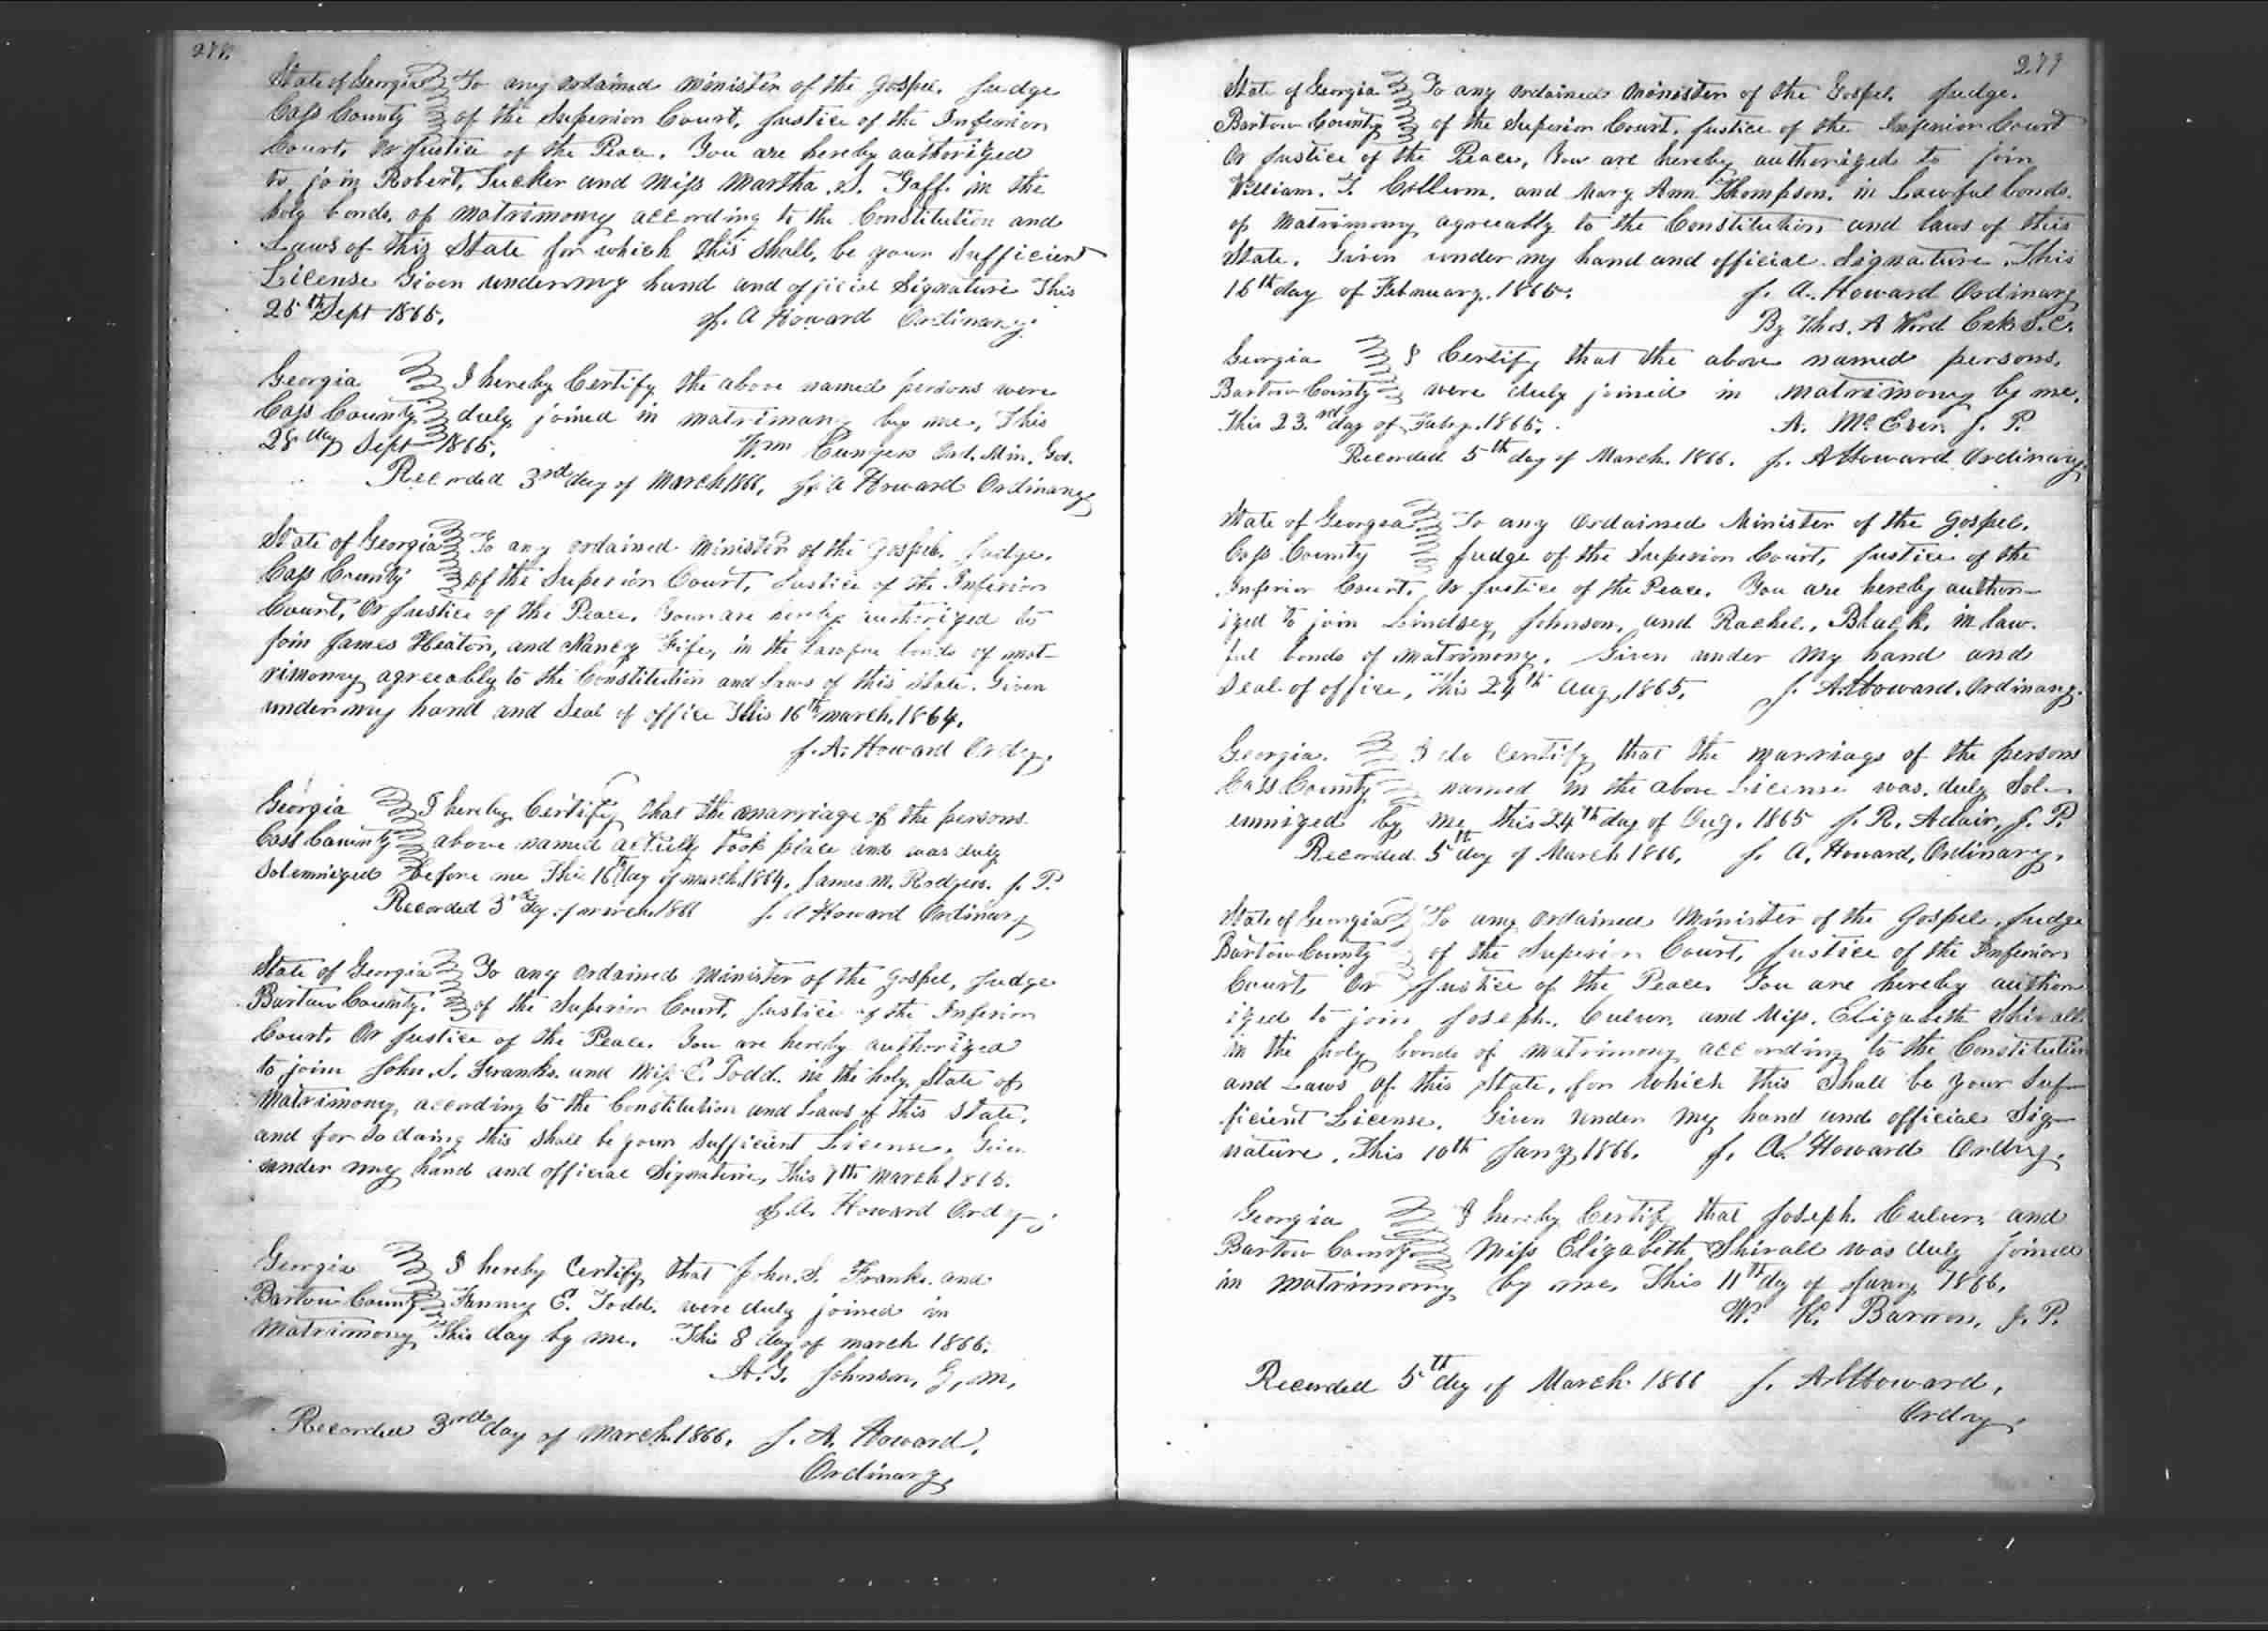 278.
State of Georgia To any ordained minister of the Gospel. Judge
Cass County of the Superior Court, Justice of the Inferior
Court, Or Justice of the Peace. You are hereby authorized
to, join Robert, Tucker and Miss Martha. S. Goff. in the
holy bonds, of Matrimony according to the Constitution and
Laws of this State for which this shall, be your Sufficient
License Given under my hand and official Signature This
25th Sept 1865. J. A Howard Ordinary.
Georgia I hereby Certify, the above named persons were
Cass County, duly, joined in matrimony by me, This
28 day Sept 1865. Wm Ord. Min. Gos.
Recorded 3rd day of March 1866, J. A Howard Ordinary
State of Georgia To any ordained Minister of the Gospel. Judge.
Cass County of the Superior Court, Justice of the Inferior
Court, Or Justice of the Peace. You are hereby authorized to
Join James Heaton, and Nancy Fife, in the Lawful bonds of mat-
rimony agreeably to the Constitution and Laws of this State. Given
under my hand and Seal of office This 16th march, 1864.
J. A. Howard Ordy,
Georgia I hereby Certify that the marriage of the persons
Cass County above named actully took place and was duly
Solemnized before me This 16th day of march, 1864, James M. Rodgers. J. P.
Recorded 3rd day of march 1866 J. A Howard Ordinary
State of Georgia To any Ordained Minister of the Gospel, Judge
Bartow County. of the Superior Court, Justice of the Inferior
Court, Or Justice of the Peace. You are hereby authorized
to join John. S. Franks. and Miss E. Todd. in the holy State of
Matrimony, according to the Constitution and Laws of this State,
and for so doing this shall be your Sufficient License. Given
under my hand and official Signature, This 7th March 1865.
J. A. Howard Ordy;
Georgia I hereby Certify that John. S. Franks. and
Bartow County Fanny E. Todd. were duly joined in
Matrimony This day by me. This 8 day of march 1866.
A. G. Johnson, G, M,
Recorded 3rd day of March 1866, J. A. Howard,
Ordinary,
279
State of Georgia To any Ordained Minister of the Gospel, Judge.
Bartow County of the Superior Court, Justice of the Inferior Court
Or Justice of the Peace, You are hereby authorized to join
William. T. Collum, and Mary Ann Thompson. in Lawful bonds.
of Matrimony agreeably to the Constitution and laws of this
State, Given under my hand and official Signature. This
16th day of February, 1865. J. A. Howard Ordinary
By Thos. A Word Clk S. C.
Georgia I Certify that the above named persons,
Bartow County were duly joined in matrimony by me,
This 23rd day of Feby. 1865. A. McEver. J. P.
Recorded 5th day of March. 1866. J. A Howard Ordinary
State of Georgia To any Ordained Minister of the Gospel.
Cass County Judge of the Superior Court, Justice of the
Inferior Court, Or Justice of the Peace. You are hereby author-
ized to join Lindsey Johnson, and Rachel, Black, in law-
ful bonds of Matrimony. Given under My hand and
Seal of office, This 24th Aug, 1865, J. A. Howard, Ordinary.
Georgia. I do Certify that the marriage of the persons
Cass County named in the above License was, duly Sol-
emnized by me, this 24th day of Aug. 1865 J. R. Adair, J. P.
Recorded 5th day of March 1866, J. A, Howard, Ordinary,
State of Georgia To any Ordained Minister of the Gospel, Judge
Bartow County of the Superior Court, Justice of the Inferior
Court, Or Justice of the Peace, You are hereby author
ized to join Joseph. Culver, and Miss, Elizabeth Shirall
in the holy bonds of Matrimony according to the Constitution
and Laws of this State, for which this Shall be your Suf-
ficient License. Given under My hand and official Sig-
nature, This 10th Jany, 1866. J. A. Howard Ordry.
Georgia I hereby Certify that Joseph. Culver, and
Bartow County Miss Elizabeth Shirall was duly joined
in Matrimony by me, This 11th dy of Jany 1866,
W. H. Barron, J. P.
Recorded 5th dy of March. 1866 J. A Howard,
Ordry,